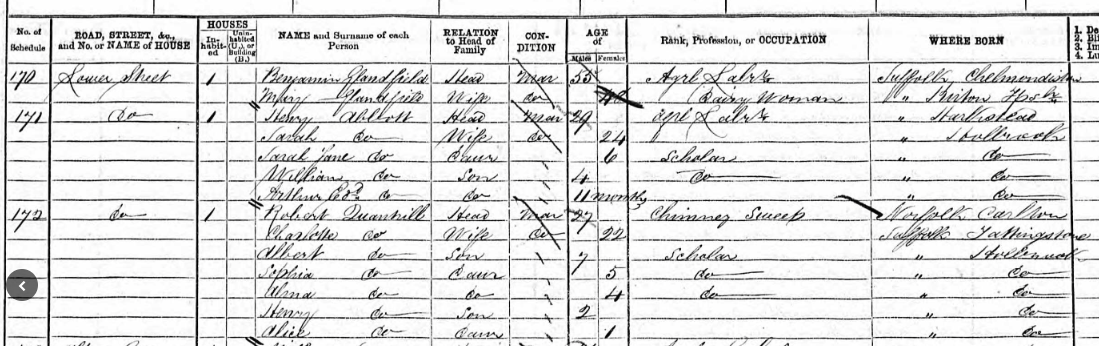 No. of Schedule | ROAD, STREET, &c., and No. or NAME of HOUSE | HOUSES In-habit-ed | Unin-habited (U.), or Building (B.) | NAME and Surname of each Person | RELATION to Head of Family | CON-DITION | AGE of Males Females | Rank, Profession, or OCCUPATION | WHERE BORN | 1. 2. 3. 4.
170 Lower Street 1 Benjamin Glandfield Head Mar 55 Agrl Labr Suffolk Chelmondiston
Mary Glandfield Wife Do Dairy Woman " Burton
171 Do 1 Henry Abbott Head Mar 29 Agrl Labr " Harkstead
Sarah Do Wife Do 24 " Holbrook
Sarah Jane Do Daur 6 Scholar " Do
William Do Son 4 Do " Do
Arthur Edd Do Do 11 months " Do
172 Do 1 Robert Quantrill Head Mar 27 Chimney Sweep Norfolk Carlton
Charlotte Do Wife Do 22 Suffolk Tattingstone
Albert Do Son 7 Scholar " Holbrook
Sophia Do Daur 5 Do " Do
Alma Do Do 4 Do " Do
Henry Do Son 2 " Do
Alice Do Daur 1 " Do